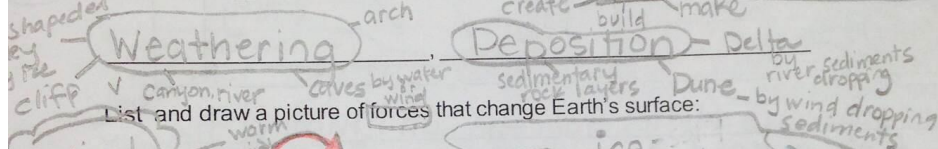 create make
shaped arch build
Weathering, Deposition - Delta
by river sediments dropping
cliff V canyon, river caves by water or wind sedimentary rock layers Dune - by wind dropping sediments
List and draw a picture of forces that change Earth's surface:
worm